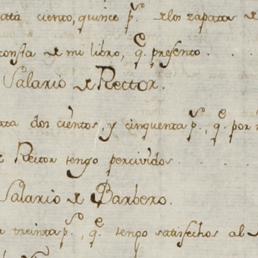 ciento, quince p.s de los zapatos de
consta de mi libro, q.e presento.
Salario de Rector.
dos cientos, y cinquenta p.s, q.e por
Rector tengo percividos.
Salario de Barbero.
treinta p.s, q.e tengo satisfechos al